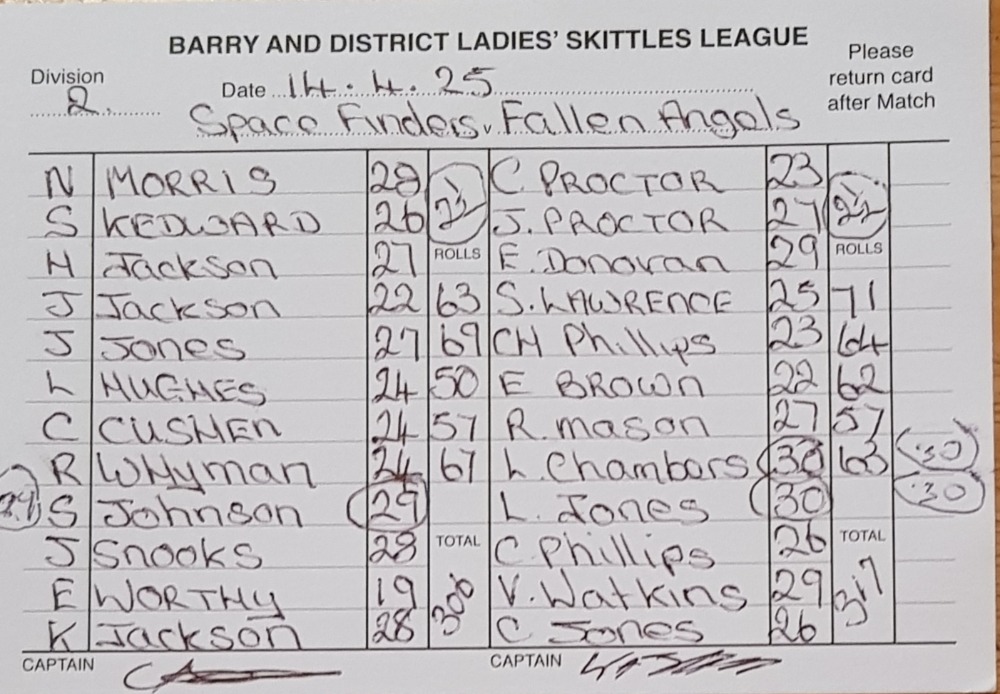 BARRY AND DISTRICT LADIES' SKITTLES LEAGUE
Please return card after Match
Division 2.
Date 14.4.25
Space Finders v Fallen Angels
N MORRIS 28 C PROCTOR 23
S KEDWARD 26 J. PROCTOR 27
H Jackson 27 ROLLS E. Donovan 29 ROLLS
J Jackson 22 63 S. LAWRENCE 25 71
J Jones 27 69 CH Phillips 23 64
L HUGHES 24 50 E BROWN 22 62
C CUSHEN 24 57 R. mason 27 57
R WHyman 24 67 L. Chambers 30 63 30
29 S Johnson 29 L. Jones 30 30
J Snooks 28 TOTAL C. Phillips 26 TOTAL
E WORTHY 19 306 V. Watkins 29 317
K Jackson 28 C Jones 26
CAPTAIN CAPTAIN